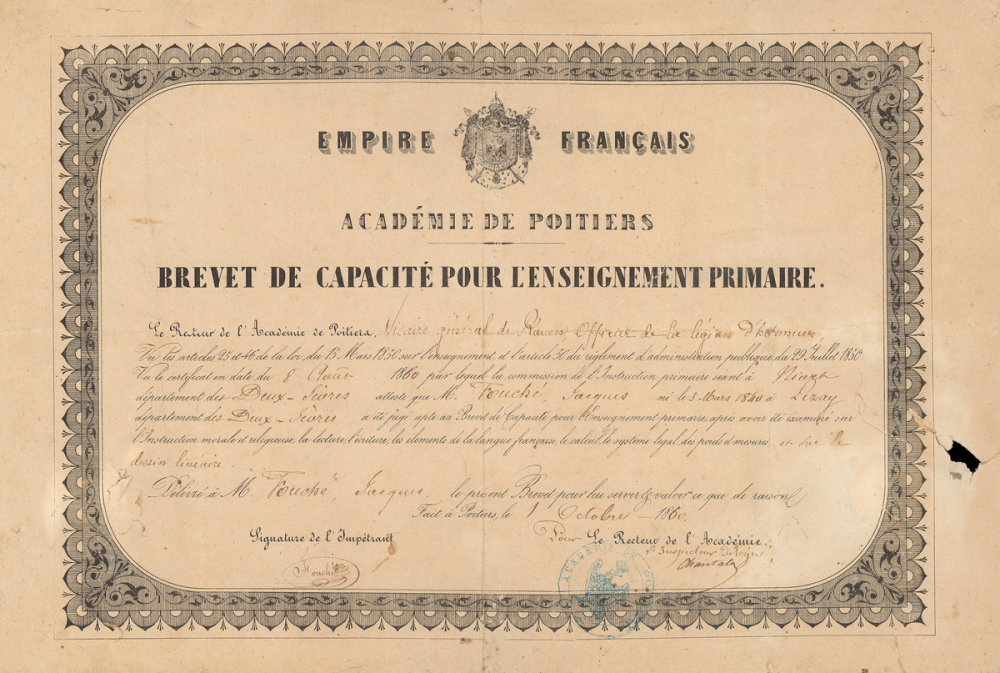 EMPIRE FRANÇAIS
ACADÉMIE DE POITIERS
BREVET DE CAPACITÉ POUR L'ENSEIGNEMENT PRIMAIRE.
Le Recteur de l'Académie de Poitiers, Vicaire général de Officier de la légion D'honneur
Vu les articles 25 et 46 de la loi du 15 Mars 1850 sur l'enseignement et l'article 50 du règlement d'administration publique du 29 Juillet 1850
Vu le certificat en date du 8 Août 1860 par lequel la commission de l'Instruction primaire séant à Niort
département des Deux-Sèvres atteste que M. Fouché, Jacques né le 3 Mars 1840 à Lezay
département des Deux-Sèvres a été jugé apte au Brevet de Capacité pour l'Enseignement primaire, après avoir été examiné sur
l'Instruction morale et religieuse, la lecture, l'écriture, les éléments de la langue française, le calcul, le système légal des poids et mesures, et sur le
dessin linéaire.
Délivré à M. Fouché, Jacques, le présent Brevet pour lui servir & valoir ce que de raison
Fait à Poitiers, le 1 Octobre 1860
Signature de l'Impétrant
Pour Le Recteur de l'Académie,
l'Inspecteur
Fouché
ACADÉMIE DE